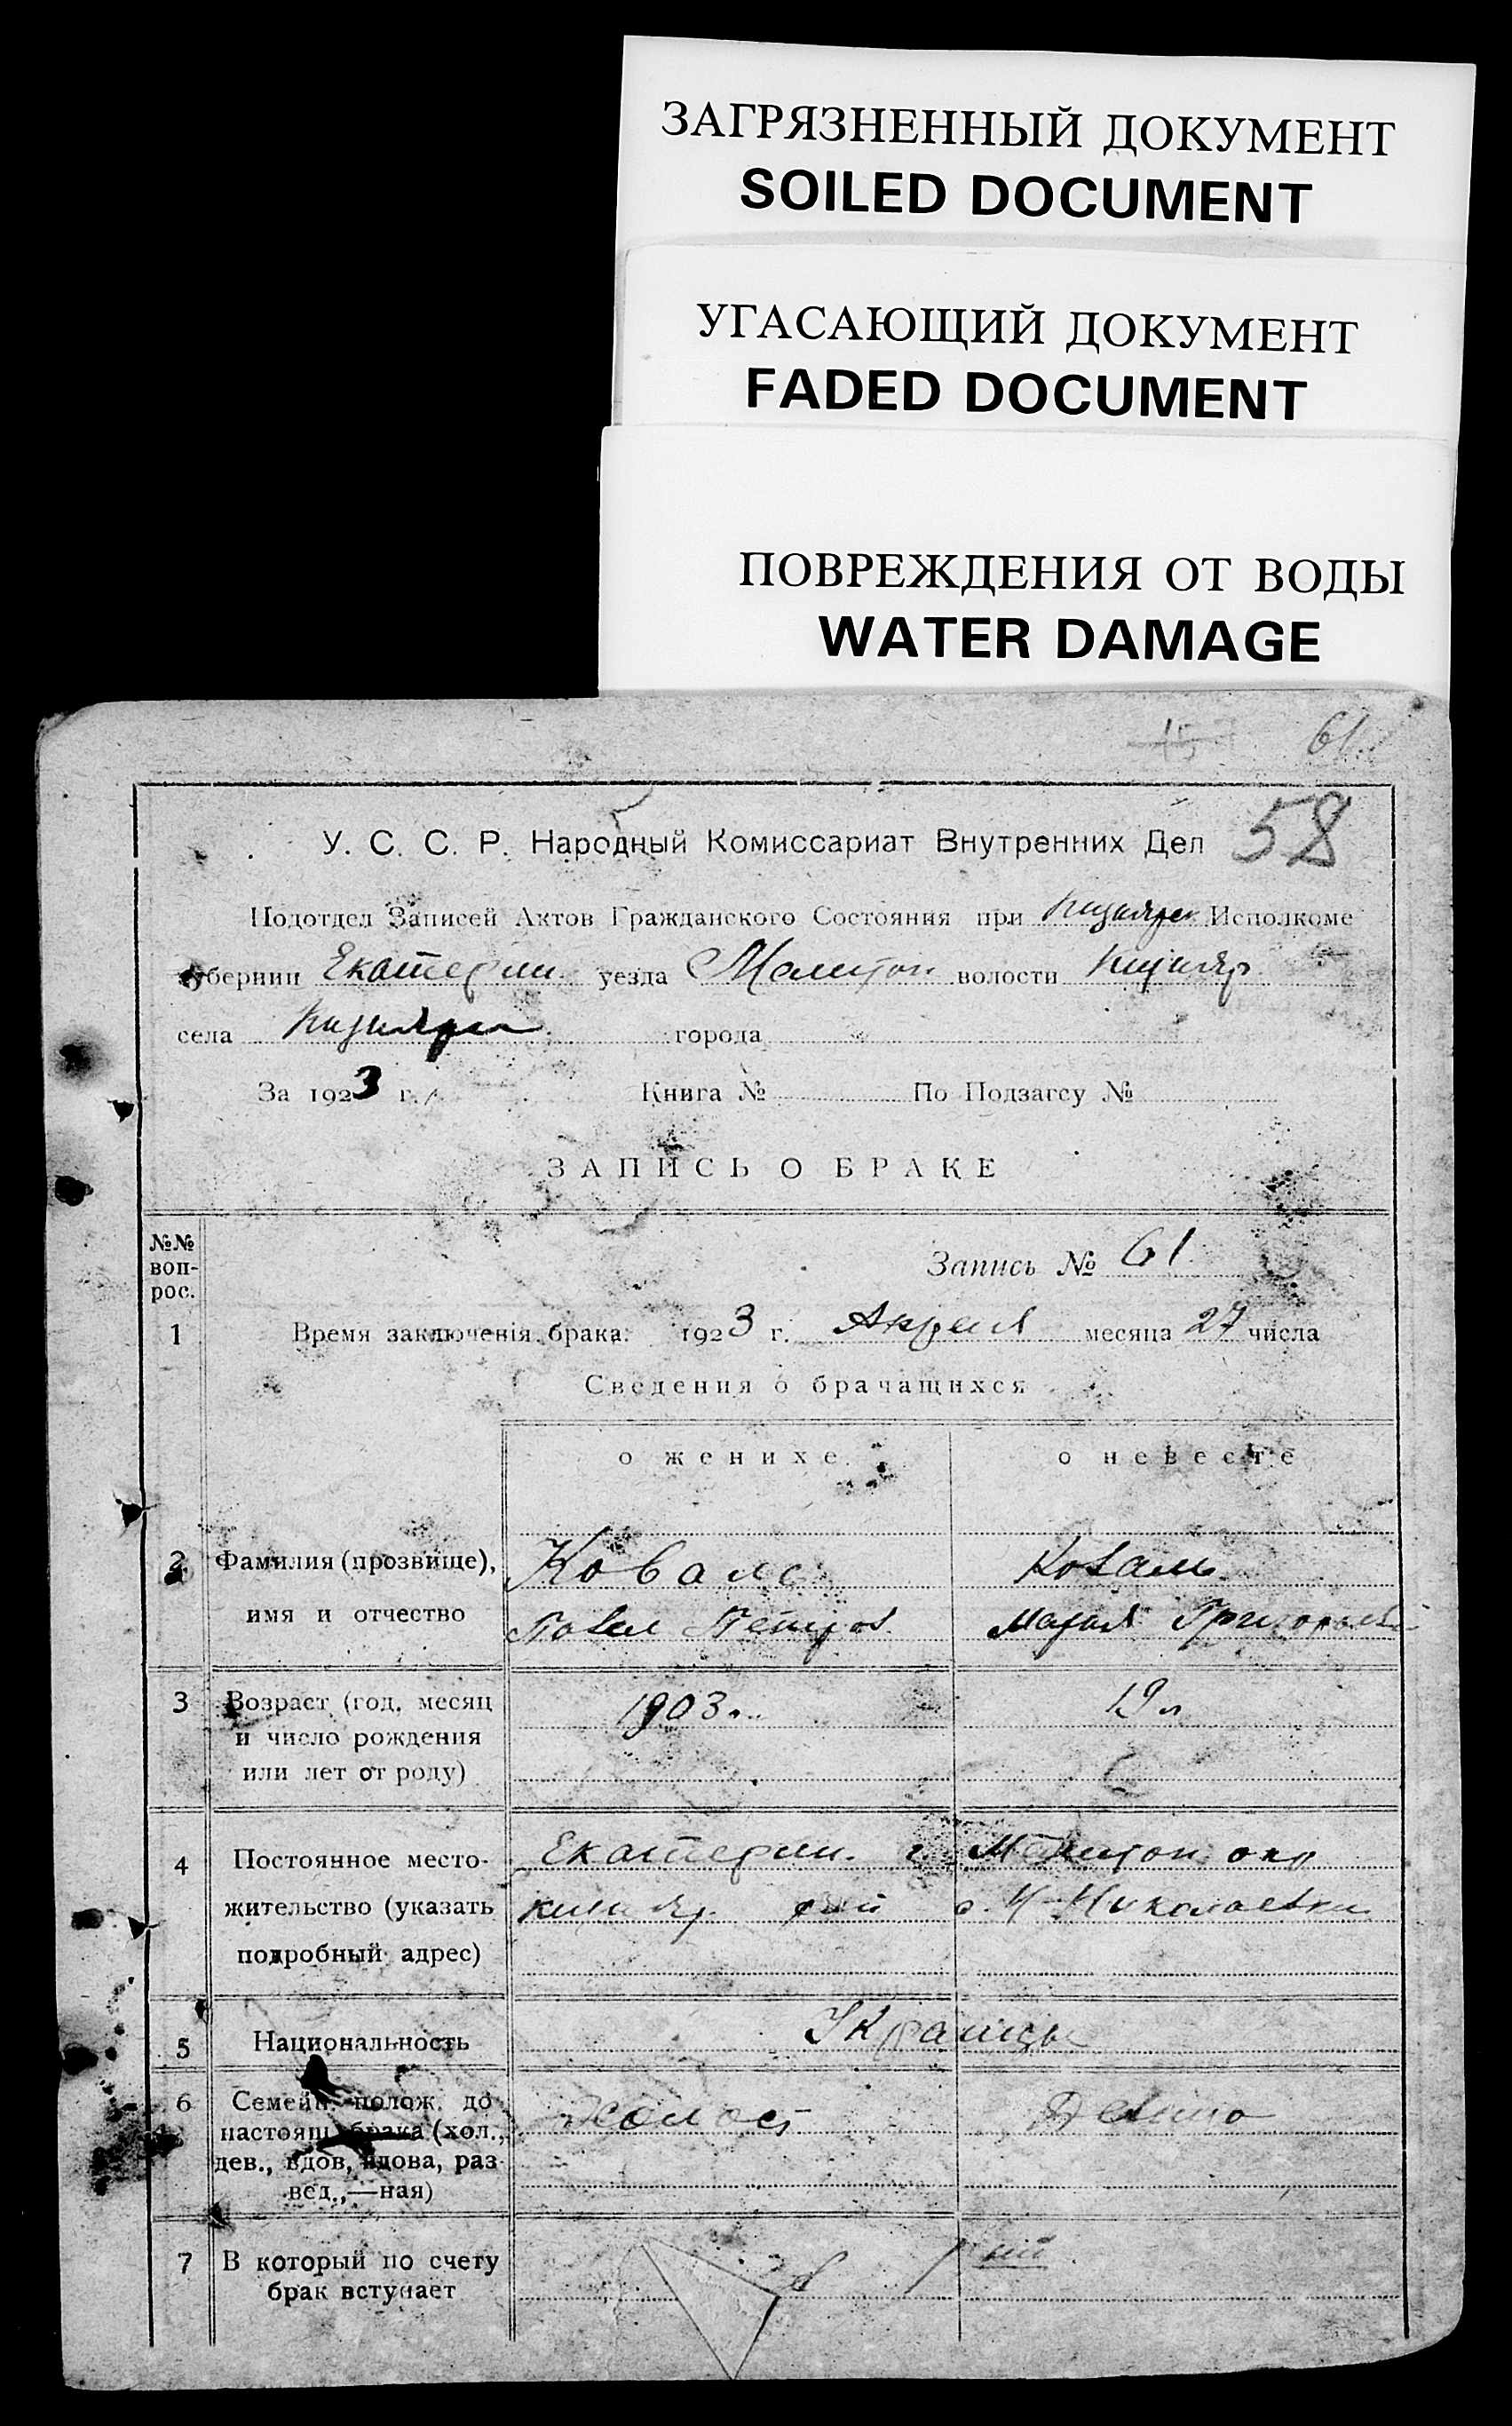 ЗАГРЯЗНЕННЫЙ ДОКУМЕНТ
SOILED DOCUMENT
УГАСАЮЩИЙ ДОКУМЕНТ
FADED DOCUMENT
ПОВРЕЖДЕНИЯ ОТ ВОДЫ
WATER DAMAGE
15 61
58
У. С. С. Р. Народный Комиссариат Внутренних Дел
Подотдел Записей Актов Гражданского Состояния при Исполкоме
губернии Екатерин. уезда Мелитоп волости Кизияр
села Кизияри города
За 1923 г. Книга № По Подзагсу №
ЗАПИСЬ О БРАКЕ
№№ вопрос.
Запись № 61
1 Время заключенія брака: 1923 г. Апреля месяца 27 числа
Сведения о брачащихся
о женихе о невесте
2 Фамилия (прозвище), Коваль Коваль
имя и отчество Павел Петров Мария Григорьев
3 Возраст (год, месяц 1903 19 л
и число рождения
или лет от роду)
4 Постоянное место- Екатерин. г. Мелитоп окр
жительство (указать Кизияр. с. Н-Николаевки
подробный адрес)
5 Национальность Украинцы
6 Семейн. полож. до Холост Девица
настоящ. брака (хол.,
дев., вдов, вдова, раз-
вед.,—ная)
7 В который по счету в 1 ый
брак вступает